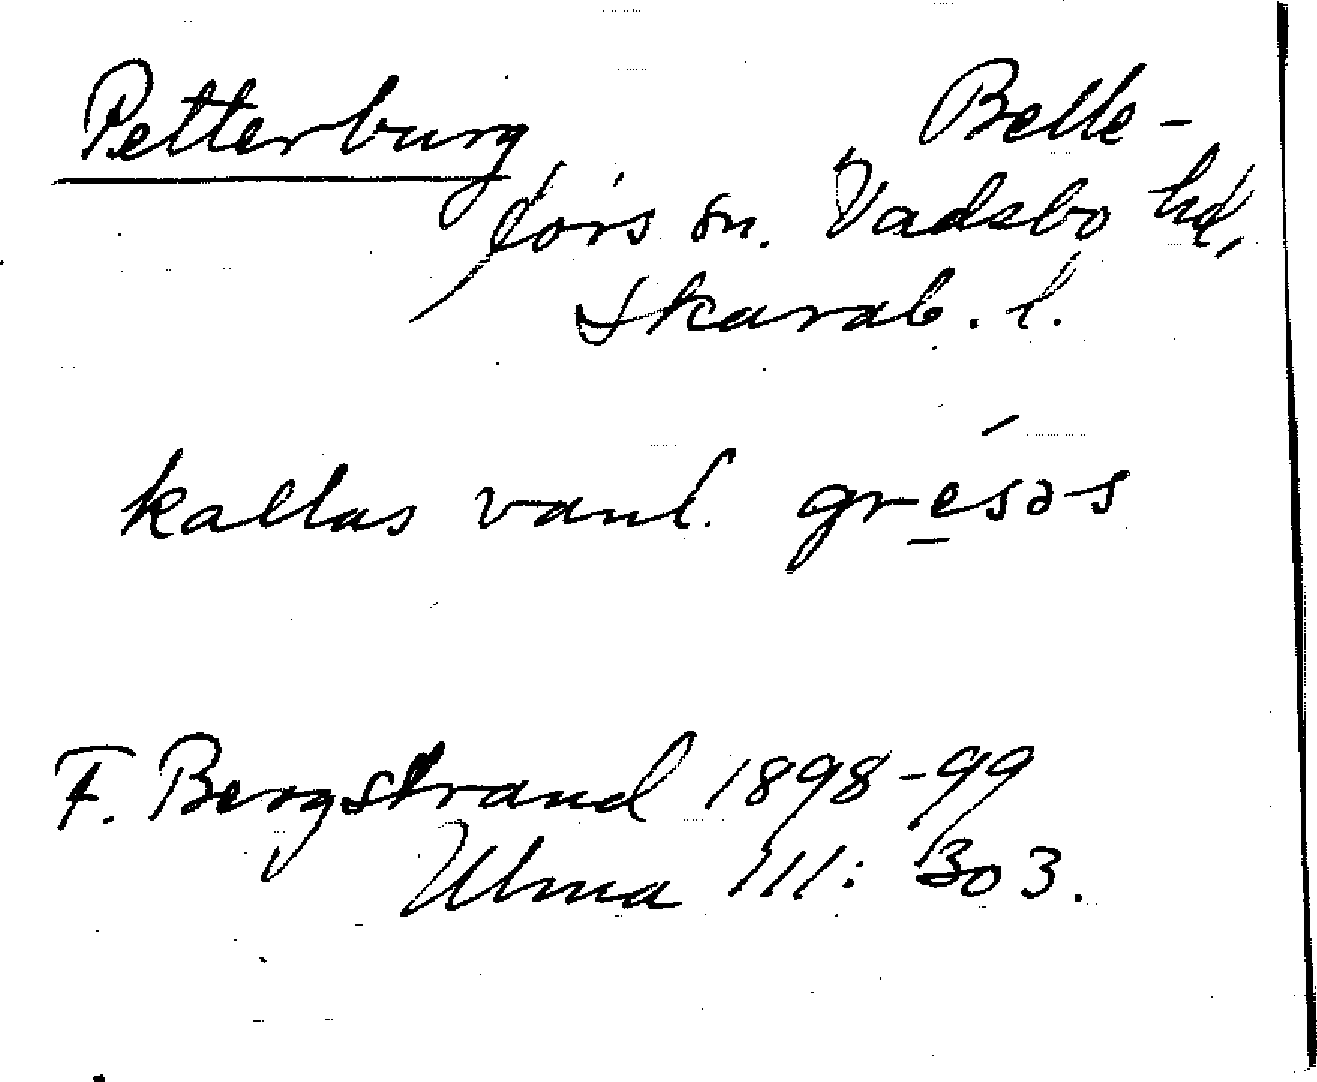 Petterburg Belle-
fors sn. Vadsbo hd,
Skarab. l.
kallas vanl. gré̲səs
F. Bergstrand 1898-99
Ulma 111: 303.